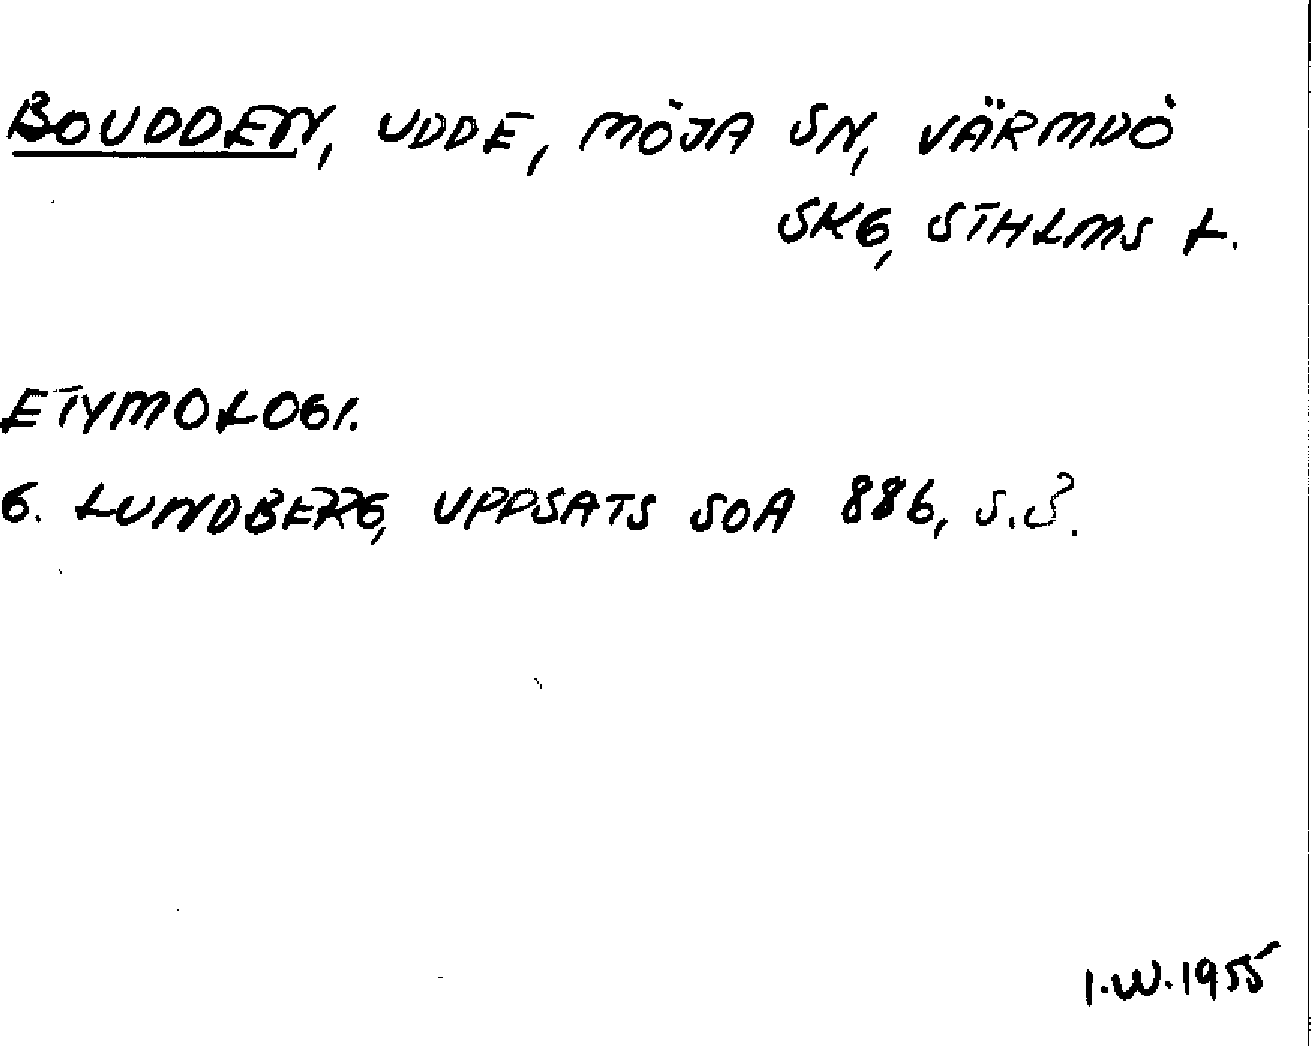 BOUDDEN, UDDE, MÖJA SN, VÄRMDÖ
SKG, STHLMS L.
ETYMOLOGI.
G. LUNDBERG, UPPSATS SOA 886, S. 3.
I.W. 1955